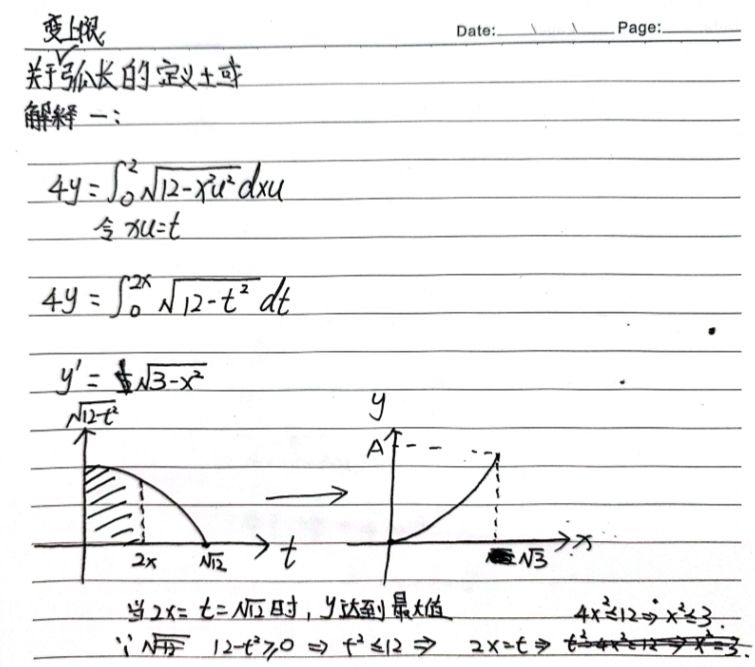 变上限 Date: Page:
关于弧长的定义域
解释一:
4y = ∫₀² √(12-x²u²) dxu
令 xu=t
4y = ∫₀²ˣ √(12-t²) dt
y' = √(3-x²)
√(12-t²)
y
A
2x √12 t
√3 x
当2x=t=√12时,y达到最大值 4x²≤12⇒x²≤3.
∵ 12-t²≥0 ⇒ t²≤12 ⇒ 2x=t ⇒